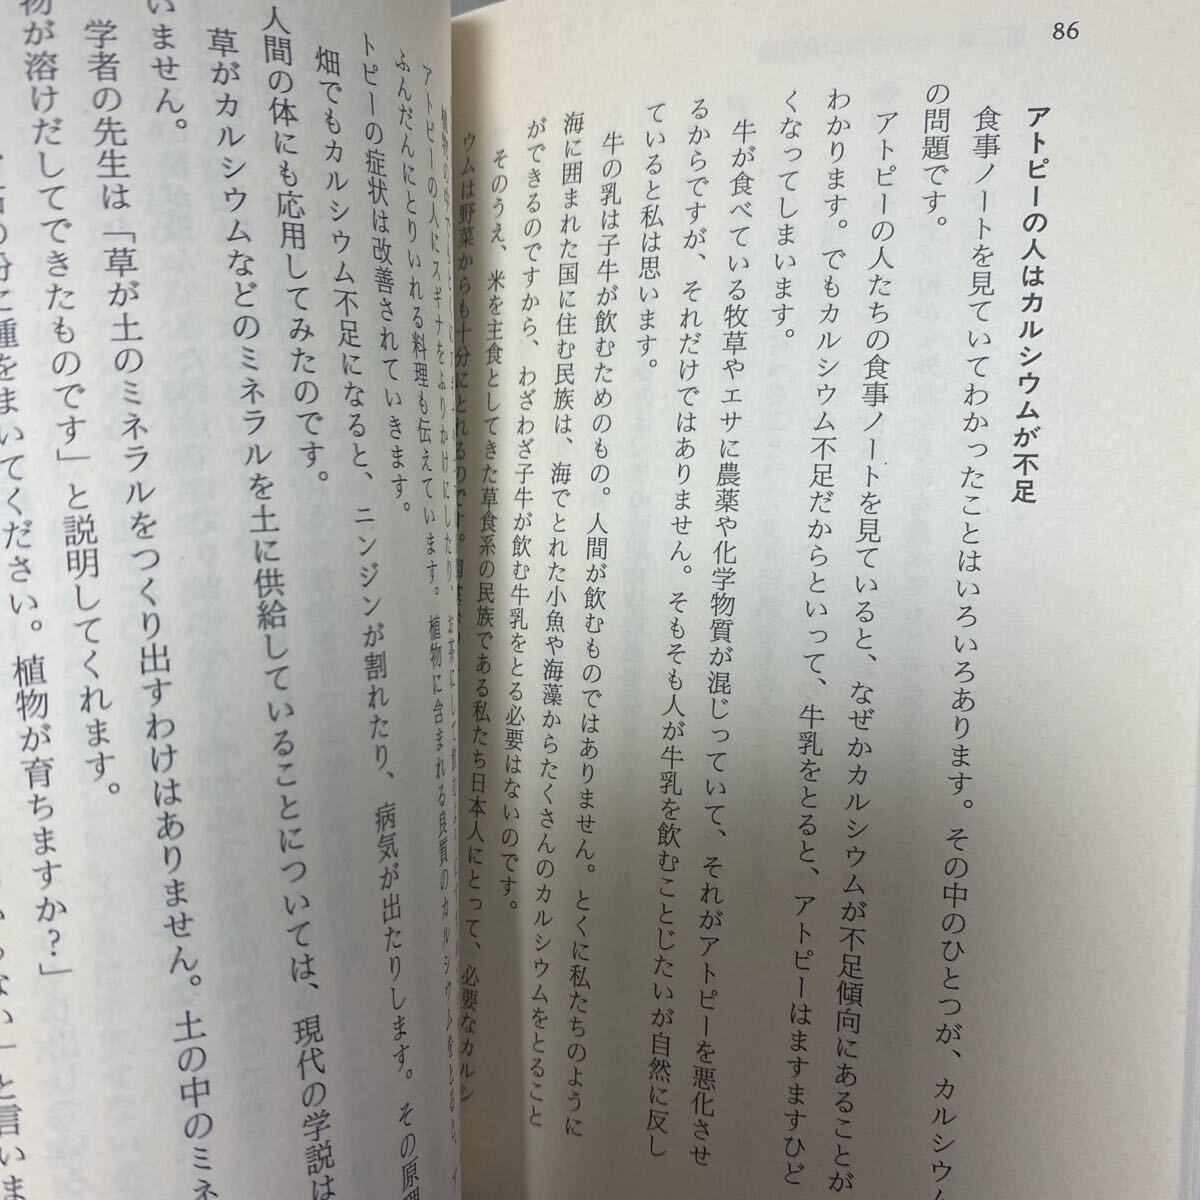 86
アトピーの人はカルシウムが不足
食事ノートを見ていてわかったことはいろいろあります。その中のひとつが、カルシウム
の問題です。
アトピーの人たちの食事ノートを見ていると、なぜかカルシウムが不足傾向にあることが
わかります。でもカルシウム不足だからといって、牛乳をとると、アトピーはますますひど
くなってしまいます。
牛が食べている牧草やエサに農薬や化学物質が混じっていて、それがアトピーを悪化させ
るからですが、それだけではありません。そもそも人が牛乳を飲むことじたいが自然に反し
ていると私は思います。
牛の乳は子牛が飲むためのもの。人間が飲むものではありません。とくに私たちのように
海に囲まれた国に住む民族は、海でとれた小魚や海藻からたくさんのカルシウムをとること
ができるのですから、わざわざ子牛が飲む牛乳をとる必要はないのです。
そのうえ、米を主食としてきた草食系の民族である私たち日本人にとって、必要なカルシ
ウムは野菜からも十分にとれるのです。
植物の中で
アトピーの人にスギナをふりかけにしたり、お茶にして飲むように
ふんだんにとりいれる料理も伝えています。植物に含まれる良質のカルシウムをとると、
トピーの症状は改善されていきます。
畑でもカルシウム不足になると、ニンジンが割れたり、病気が出たりします。その原理
人間の体にも応用してみたのです。
草がカルシウムなどのミネラルを土に供給していることについては、現代の学説は
いません。
学者の先生は「草が土のミネラルをつくり出すわけはありません。土の中のミネ
物が溶けだしてできたものです」と説明してくれます。
に種をまいてください。植物が育ちますか？」
ない」と言いま